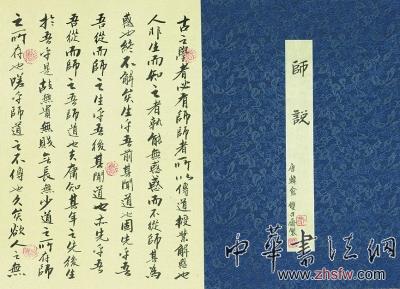 古之學者必有師師者所以傳道授業解惑也
人非生而知之者孰能無惑惑而不從師其為
惑也終不解矣生乎吾前其聞道也固先乎吾
吾從而師之生乎吾後其聞道也亦先乎吾
吾從而師之吾師道也夫庸知其年之先後生
於吾乎是故無貴無賤無長無少道之所存師
之所存也嗟乎師道之不傳也久矣欲人之無
師說
唐韓愈
中華書法網
www.zhsfw.com